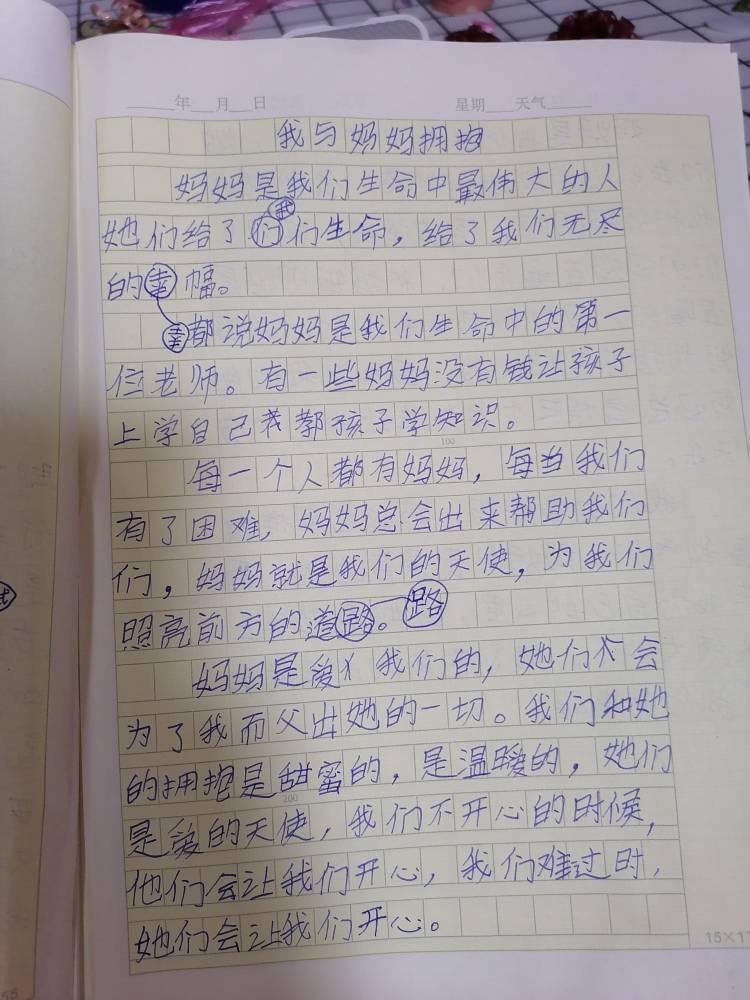 年 月 日 星期 天气
我与妈妈拥抱
妈妈是我们生命中最伟大的人
她们给了们我们生命，给了我们无尽
的幸幅。
幸都说妈妈是我们生命中的第一
位老师。有一些妈妈没有钱让孩子
上学自己教孩子学知识。
100
每一个人都有妈妈，每当我们
有了困难，妈妈总会出来帮助我们
们，妈妈就是我们的天使，为我们
照亮前方的道路。路
妈妈是爱我们的，她们会
为了我而父出她的一切。我们和她
的拥抱是甜蜜的，是温暖的，她们
200
是爱的天使，我们不开心的时候，
他们会让我们开心，我们难过时，
她们会让我们开心。
15×17